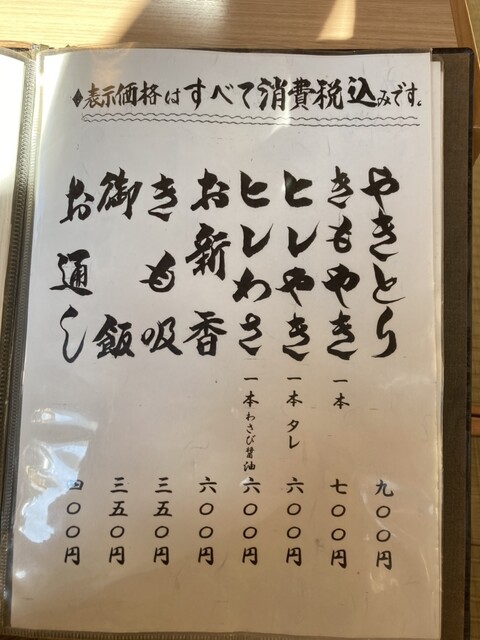 ◆表示価格はすべて消費税込みです。
やきとり 九〇〇円
きもやき 一本 七〇〇円
ヒレやき 一本 タレ 六〇〇円
ヒレわさ 一本 わさび醤油 六〇〇円
お新香 六〇〇円
きも吸 三五〇円
御飯 三五〇円
お通し 四〇〇円